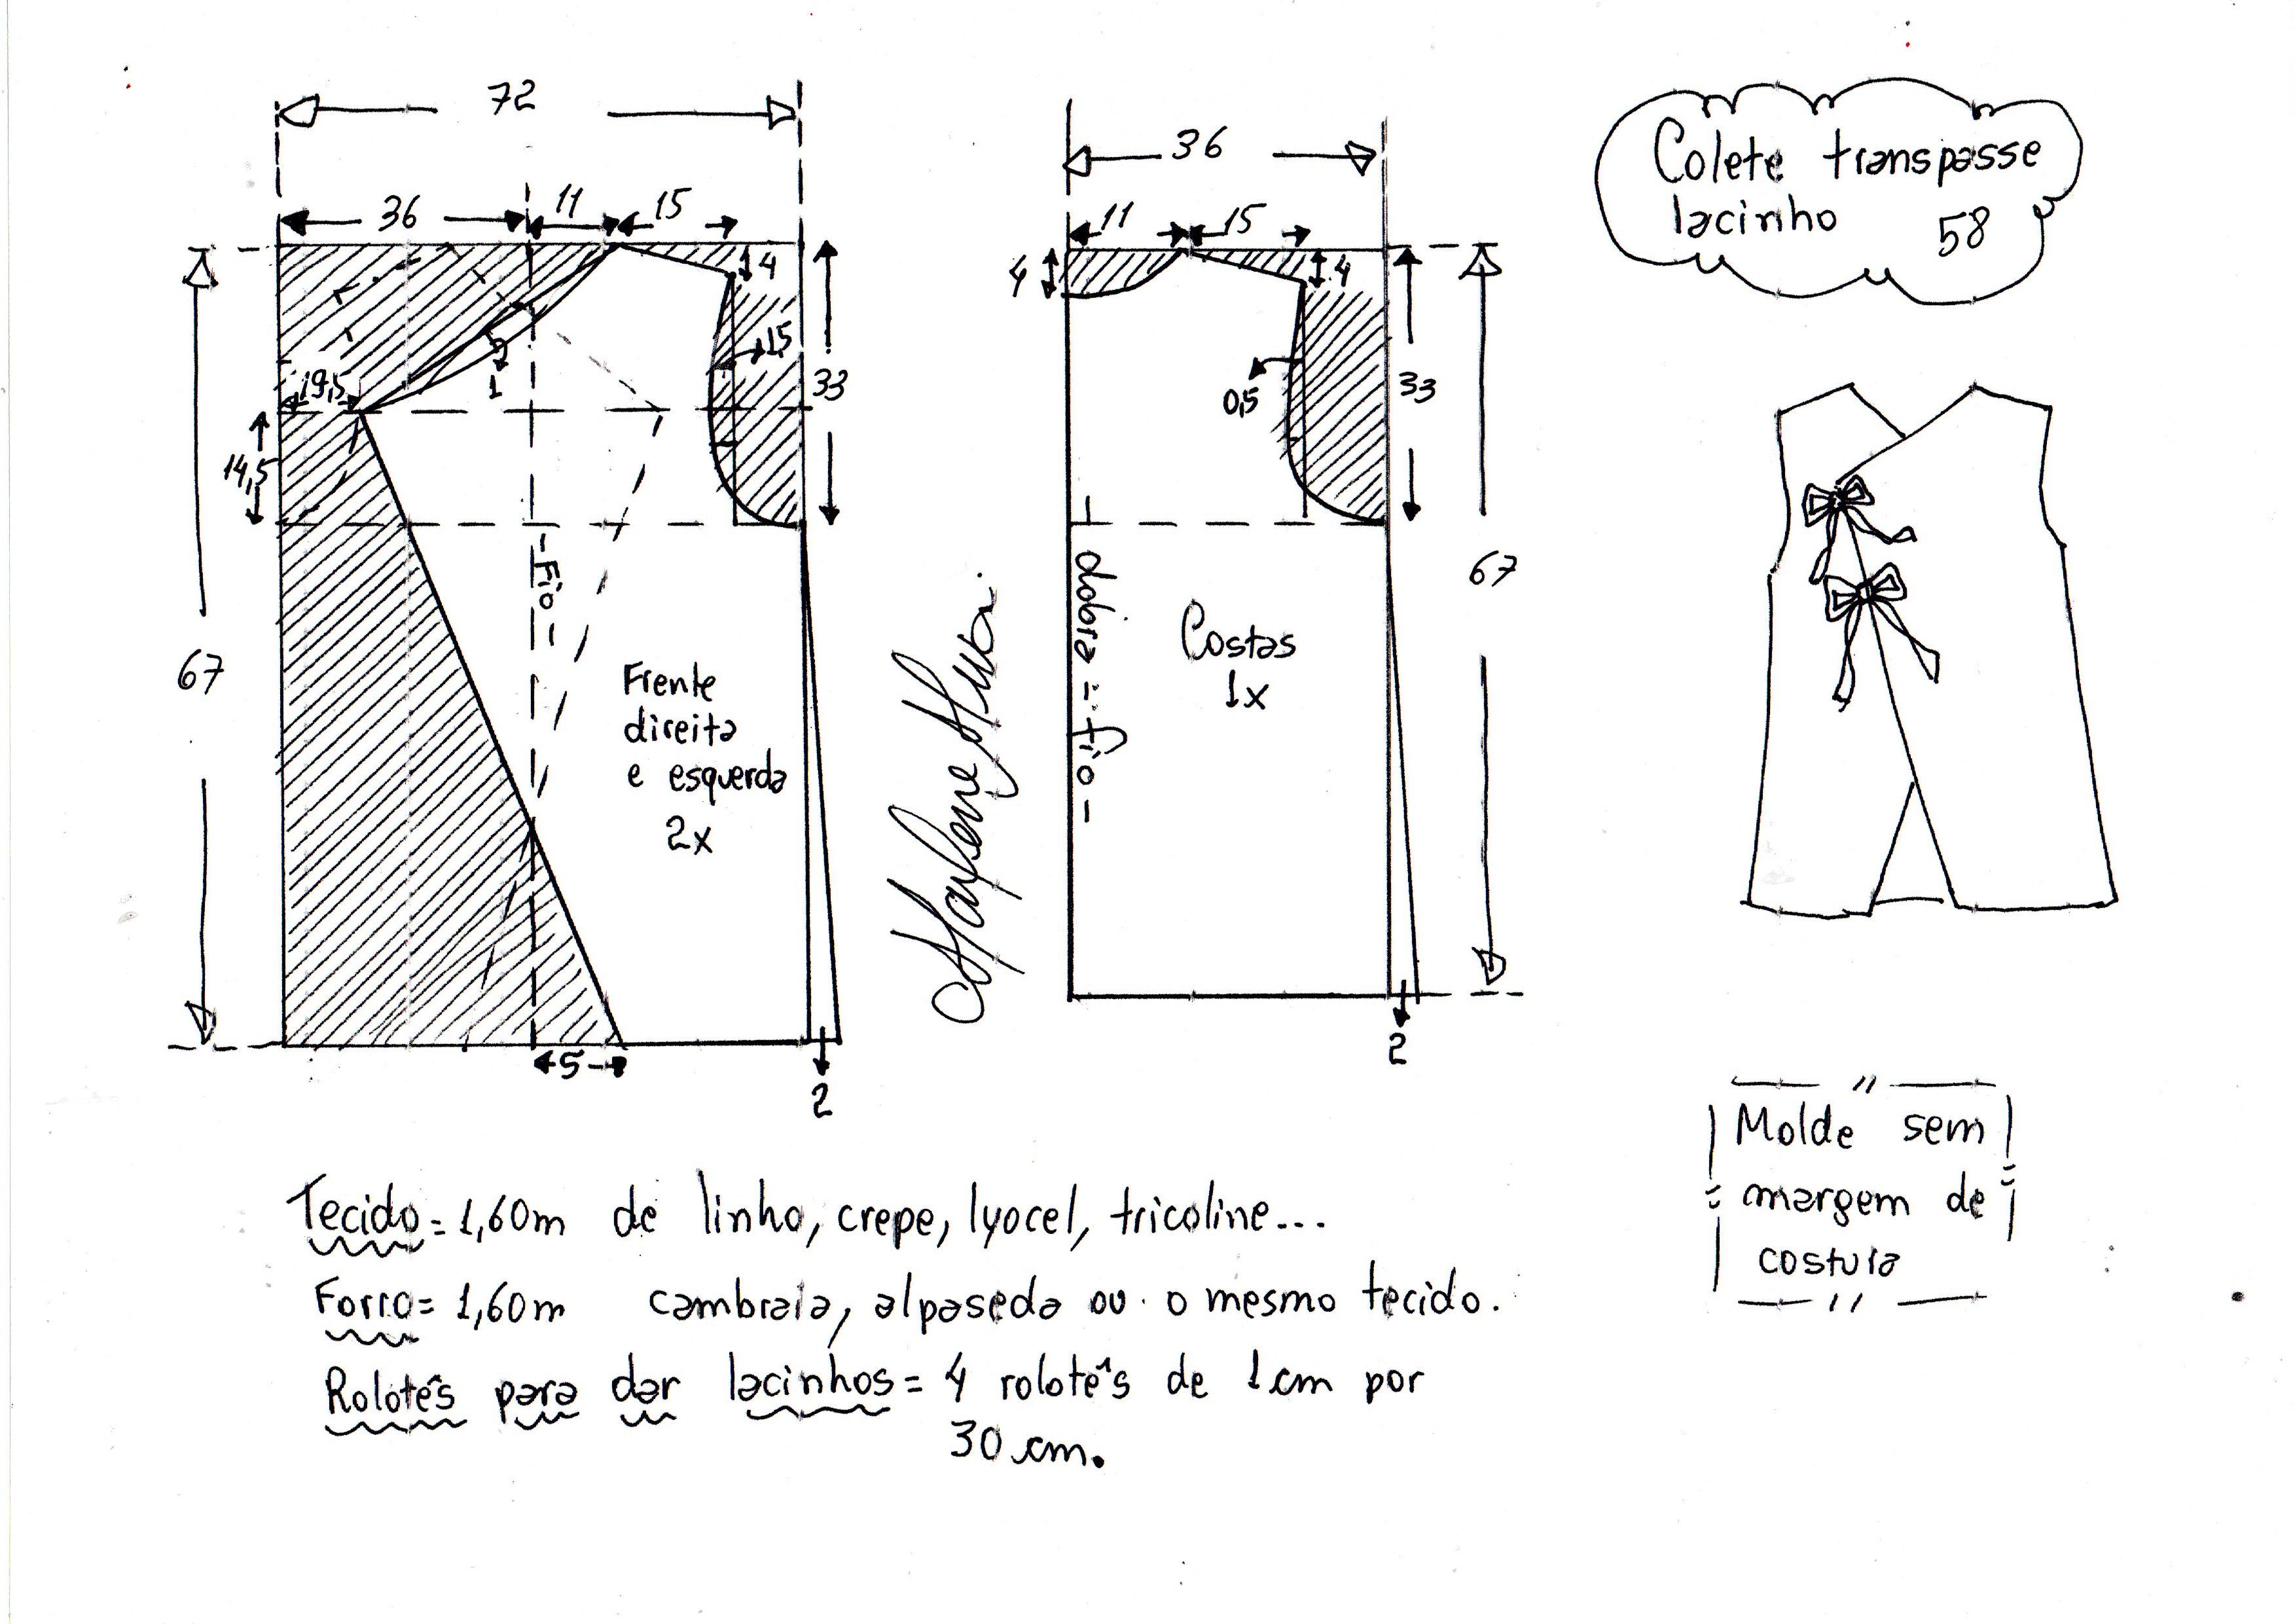 72
36 11 15
4
1,5
33
19,5
1
14,5
67
- Fio -
Frente
direita
e esquerda
2x
5
2
36
11 15
4
4
0,5
33
dobra = fio -
Costas
1x
67
2
Colete transpasse
lacinho 58
Molde sem
margem de
costura
Tecido = 1,60m de linho, crepe, lyocel, tricoline...
Forro = 1,60m cambraia, alpaseda ou o mesmo tecido.
Rolotês para dar lacinhos = 4 rolotês de 1 cm por
30 cm.